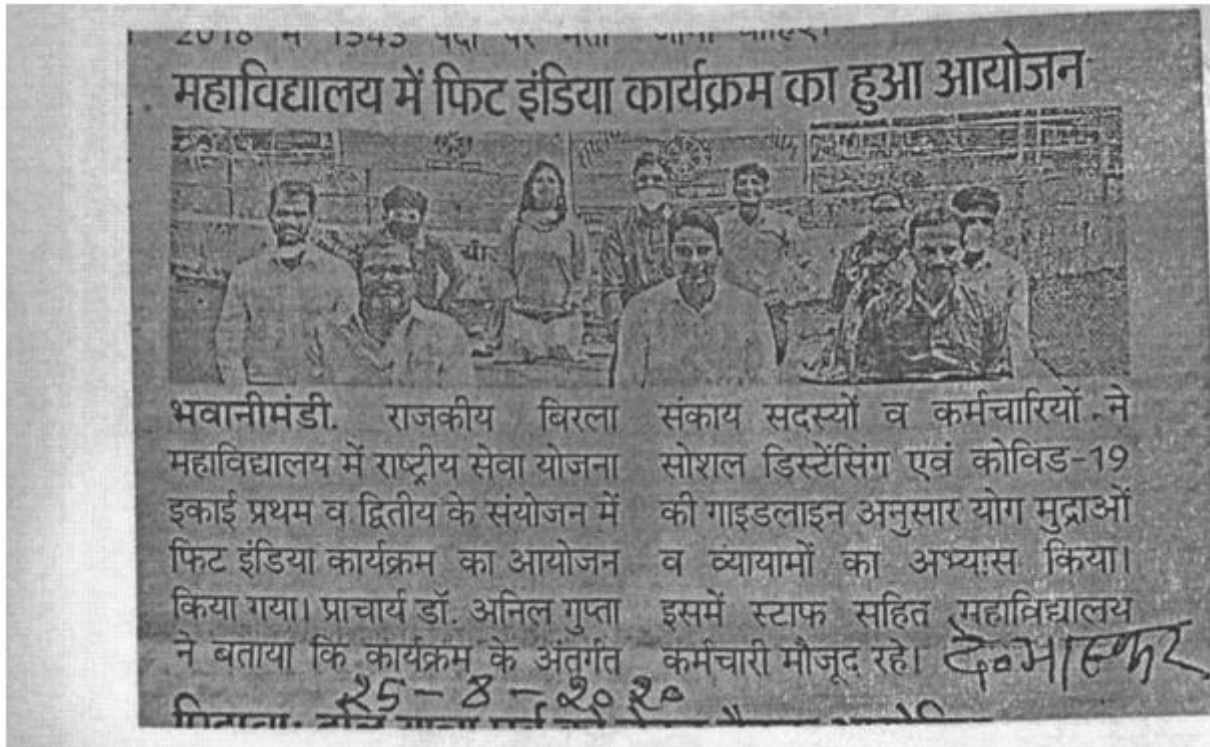 2018 में 1543 पदों पर भर्ती
महाविद्यालय में फिट इंडिया कार्यक्रम का हुआ आयोजन
भवानीमंडी. राजकीय बिरला
महाविद्यालय में राष्ट्रीय सेवा योजना
इकाई प्रथम व द्वितीय के संयोजन में
फिट इंडिया कार्यक्रम का आयोजन
किया गया। प्राचार्य डॉ. अनिल गुप्ता
ने बताया कि कार्यक्रम के अंतर्गत
संकाय सदस्यों व कर्मचारियों ने
सोशल डिस्टेंसिंग एवं कोविड-19
की गाइडलाइन अनुसार योग मुद्राओं
व व्यायामों का अभ्यास किया।
इसमें स्टाफ सहित महाविद्यालय
कर्मचारी मौजूद रहे।
दै०भास्कर
२5-8-२०२०